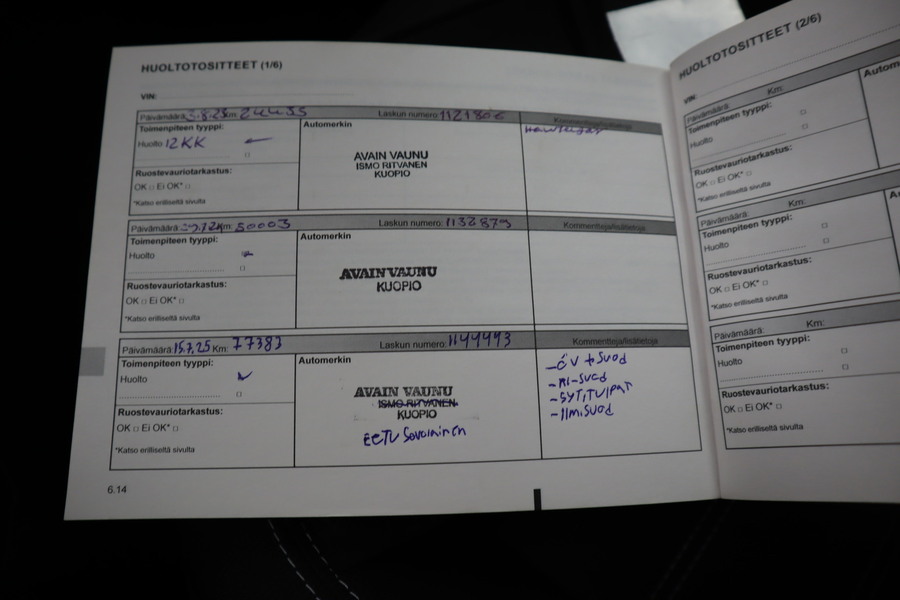 HUOLTOTOSITTEET (1/6)
VIN:
Päivämäärä: Km 24455 Laskun numero: 1121806 Kommentteja/lisätietoja
Toimenpiteen tyyppi: Automerkin
Huolto 12KK
AVAIN VAUNU
ISMO RITVANEN
KUOPIO
Ruostevauriotarkastus:
OK □ Ei OK* □
*Katso erilliseltä sivulta
Päivämäärä: Km: 50003 Laskun numero: 1132879 Kommentteja/lisätietoja
Toimenpiteen tyyppi: Automerkin
Huolto
AVAIN VAUNU
KUOPIO
Ruostevauriotarkastus:
OK □ Ei OK* □
*Katso erilliseltä sivulta
Päivämäärä: 15.7.25 Km: 77383 Laskun numero: 1144443 Kommentteja/lisätietoja
Toimenpiteen tyyppi: Automerkin
Huolto
AVAIN VAUNU
ISMO RITVANEN
KUOPIO
EETU Savolainen
-ÖV + Suod
-RI-suod
-SYT.TULPAT
-Ilm.Suod
Ruostevauriotarkastus:
OK □ Ei OK* □
*Katso erilliseltä sivulta
6.14
HUOLTOTOSITTEET (2/6)
VIN:
Päivämäärä: Km:
Toimenpiteen tyyppi:
Huolto
Ruostevauriotarkastus:
OK □ Ei OK* □
*Katso erilliseltä sivulta
Päivämäärä: Km:
Toimenpiteen tyyppi:
Huolto
Ruostevauriotarkastus:
OK □ Ei OK* □
*Katso erilliseltä sivulta
Päivämäärä: Km:
Toimenpiteen tyyppi:
Huolto
Ruostevauriotarkastus:
OK □ Ei OK* □
*Katso erilliseltä sivulta